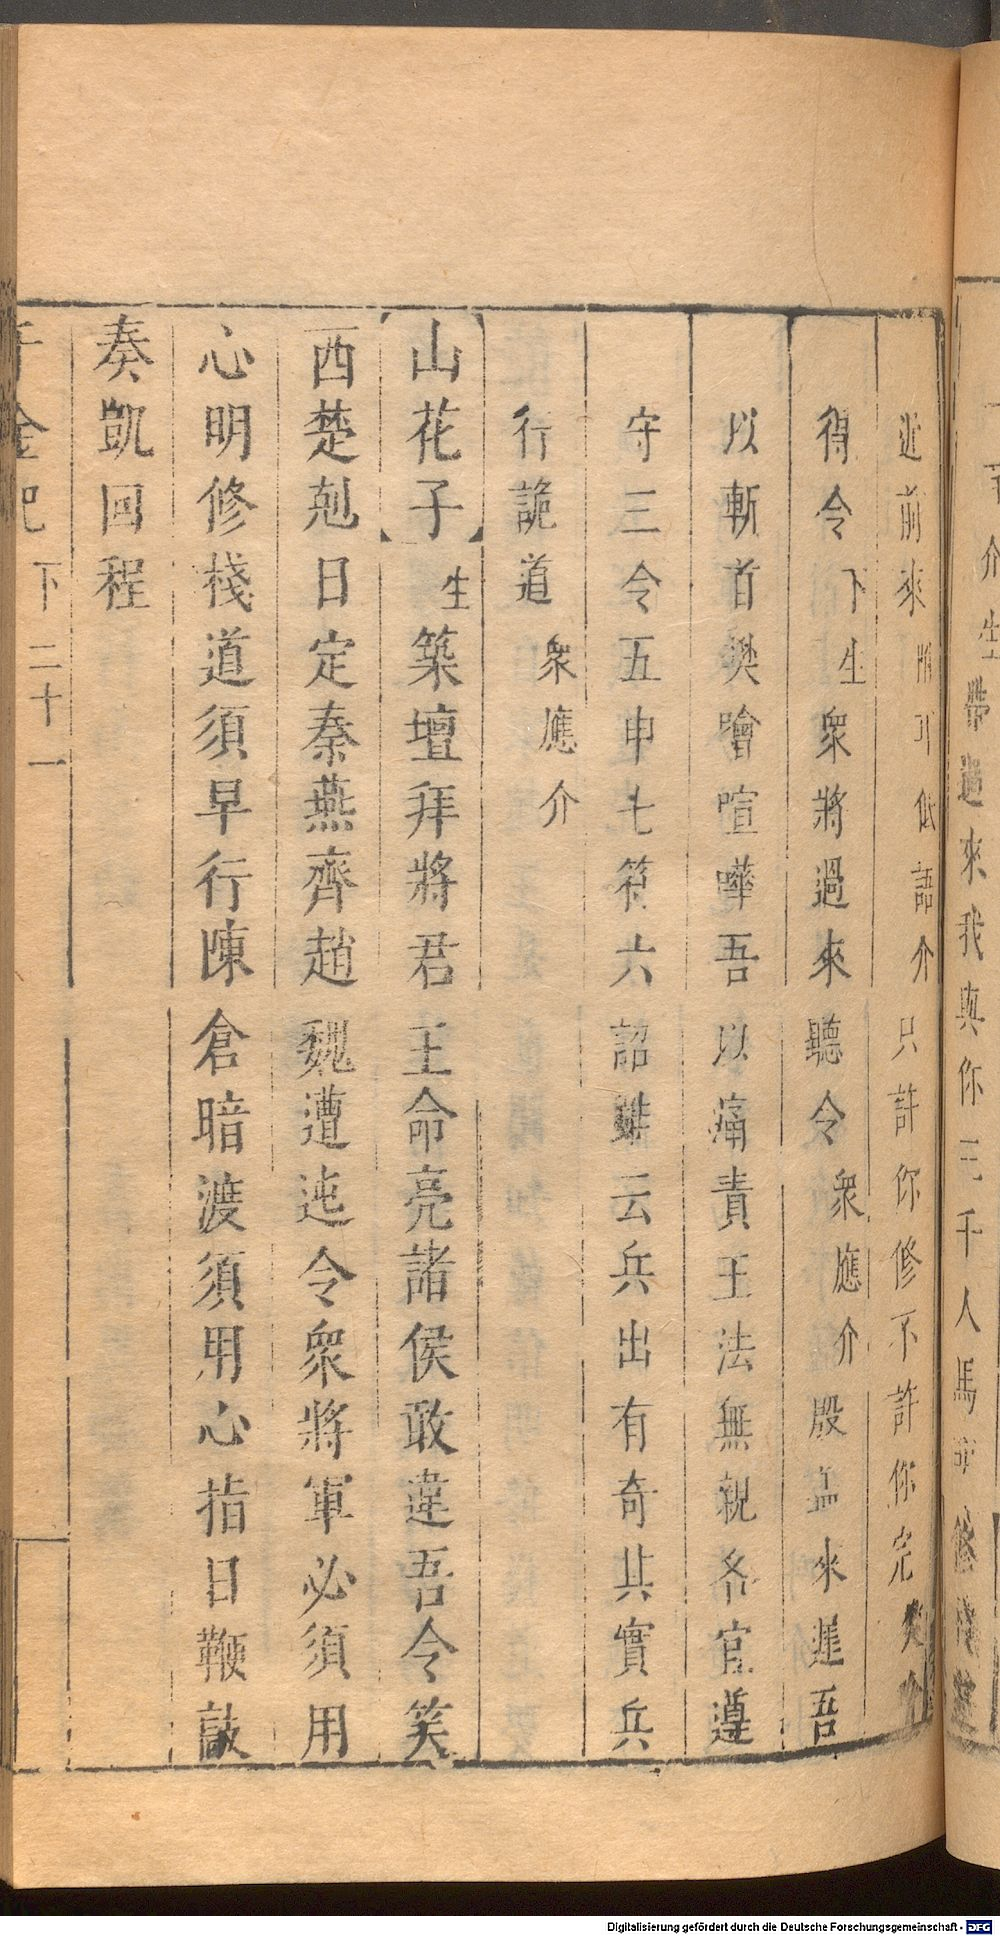 介生帶過來我與你三千人馬
近前來附耳低語介只許你修不許你完
得令下生衆將過來聽令衆應介殷盖來遲吾
以斬首樊噲喧嘩吾以痛責王法無親各官遵
守三令五申七符六詔云兵出有奇其實兵
行詭道衆應介
【山花子】生築壇拜將君王命亮諸侯敢違吾令笑
西楚剋日定秦燕齊趙魏遭迍令衆將軍必須用
心明修棧道須早行陳倉暗渡須用心指日鞭敲
奏凱回程
千金記下二十一
Digitalisierung gefördert durch die Deutsche Forschungsgemeinschaft - DFG